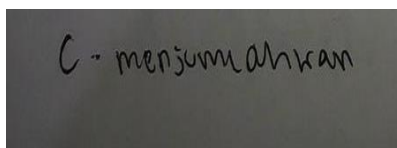 C. menjumlahkan